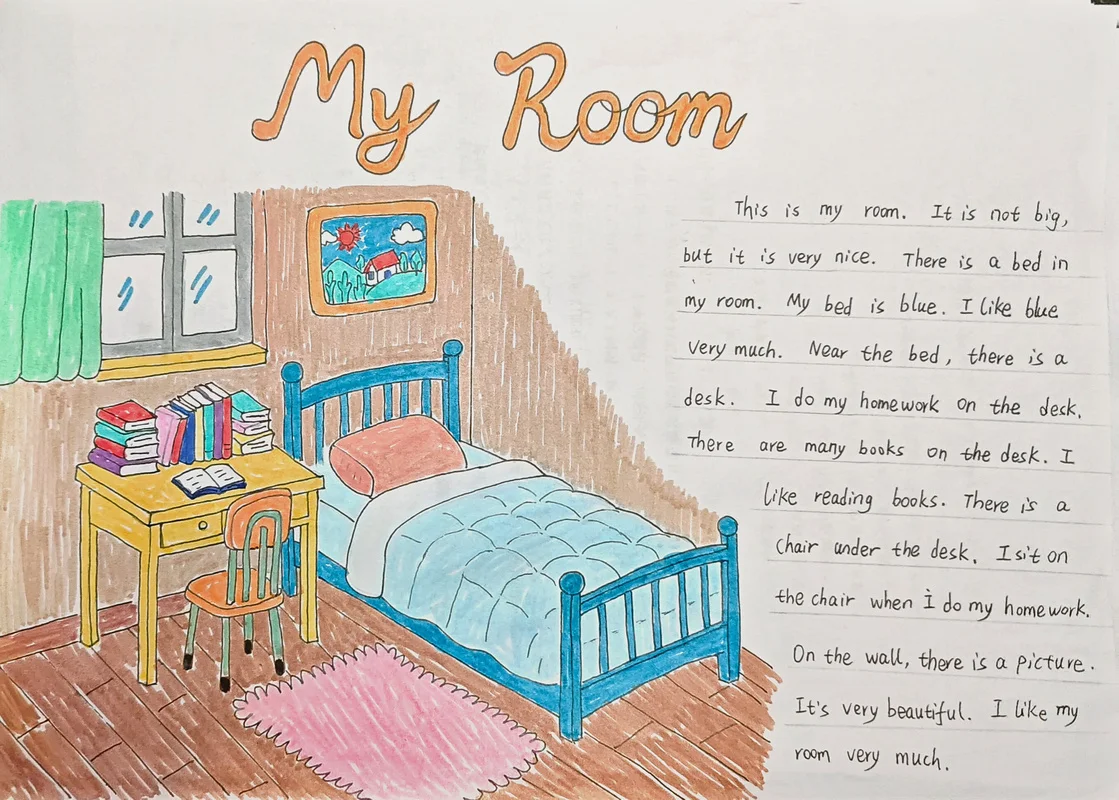 My Room
This is my room. It is not big,
but it is very nice. There is a bed in
my room. My bed is blue. I like blue
very much. Near the bed, there is a
desk. I do my homework on the desk.
There are many books on the desk. I
like reading books. There is a
chair under the desk. I sit on
the chair when I do my homework.
On the wall, there is a picture.
It's very beautiful. I like my
room very much.